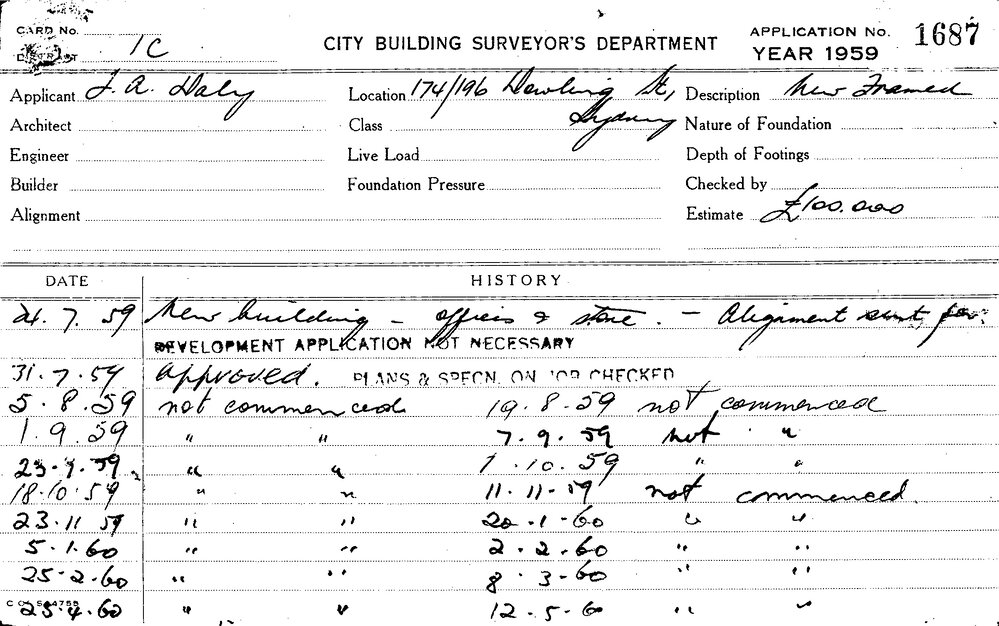 CARD No. 1C
DISTRICT
CITY BUILDING SURVEYOR'S DEPARTMENT
APPLICATION No. 1687
YEAR 1959
Applicant J. A. Daly Location 174/196 Dowling St, Sydney Description New Framed
Architect Class Nature of Foundation
Engineer Live Load Depth of Footings
Builder Foundation Pressure Checked by
Alignment Estimate £100.000
DATE HISTORY
21. 7. 59 New building - offices & store. - Alignment sent for.
DEVELOPMENT APPLICATION NOT NECESSARY
31. 7. 59 approved. PLANS & SPECN. ON JOB CHECKED
5. 8. 59 not commenced 19. 8. 59 not commenced
1. 9. 59 " " 7. 9. 59 not "
23. 9. 59 " " 1. 10. 59 " "
18. 10. 59 " " 11. 11. 59 not commenced.
23. 11 59 " " 20. 1. 60 " "
5. 1. 60 " " 2. 2. 60 " "
25. 2. 60 " " 8. 3. 60 " "
25. 4. 60 " " 12. 5. 60 " "